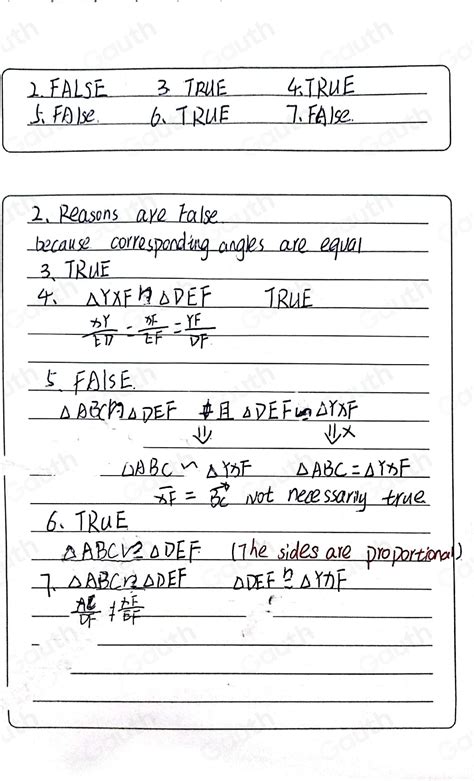 2. FALSE 3 TRUE 4. TRUE
5. FAlse. 6. TRUE 7. FAlse.
2. Reasons are False
because corresponding angles are equal
3. TRUE
4. △YXF ∽ △DEF TRUE
XY/ED = XF/EF = YF/DF
5. FAlSE.
△ABC ∽ △DEF 且 △DEF ∽ △YXF
⇓ ⇓×
△ABC ∽ △YXF △ABC = △YXF
XF = BC Not necessarily true
6. TRUE
△ABC ∽ △DEF (The sides are proportional)
7. △ABC ∽ △DEF △DEF ∽ △YXF
≠